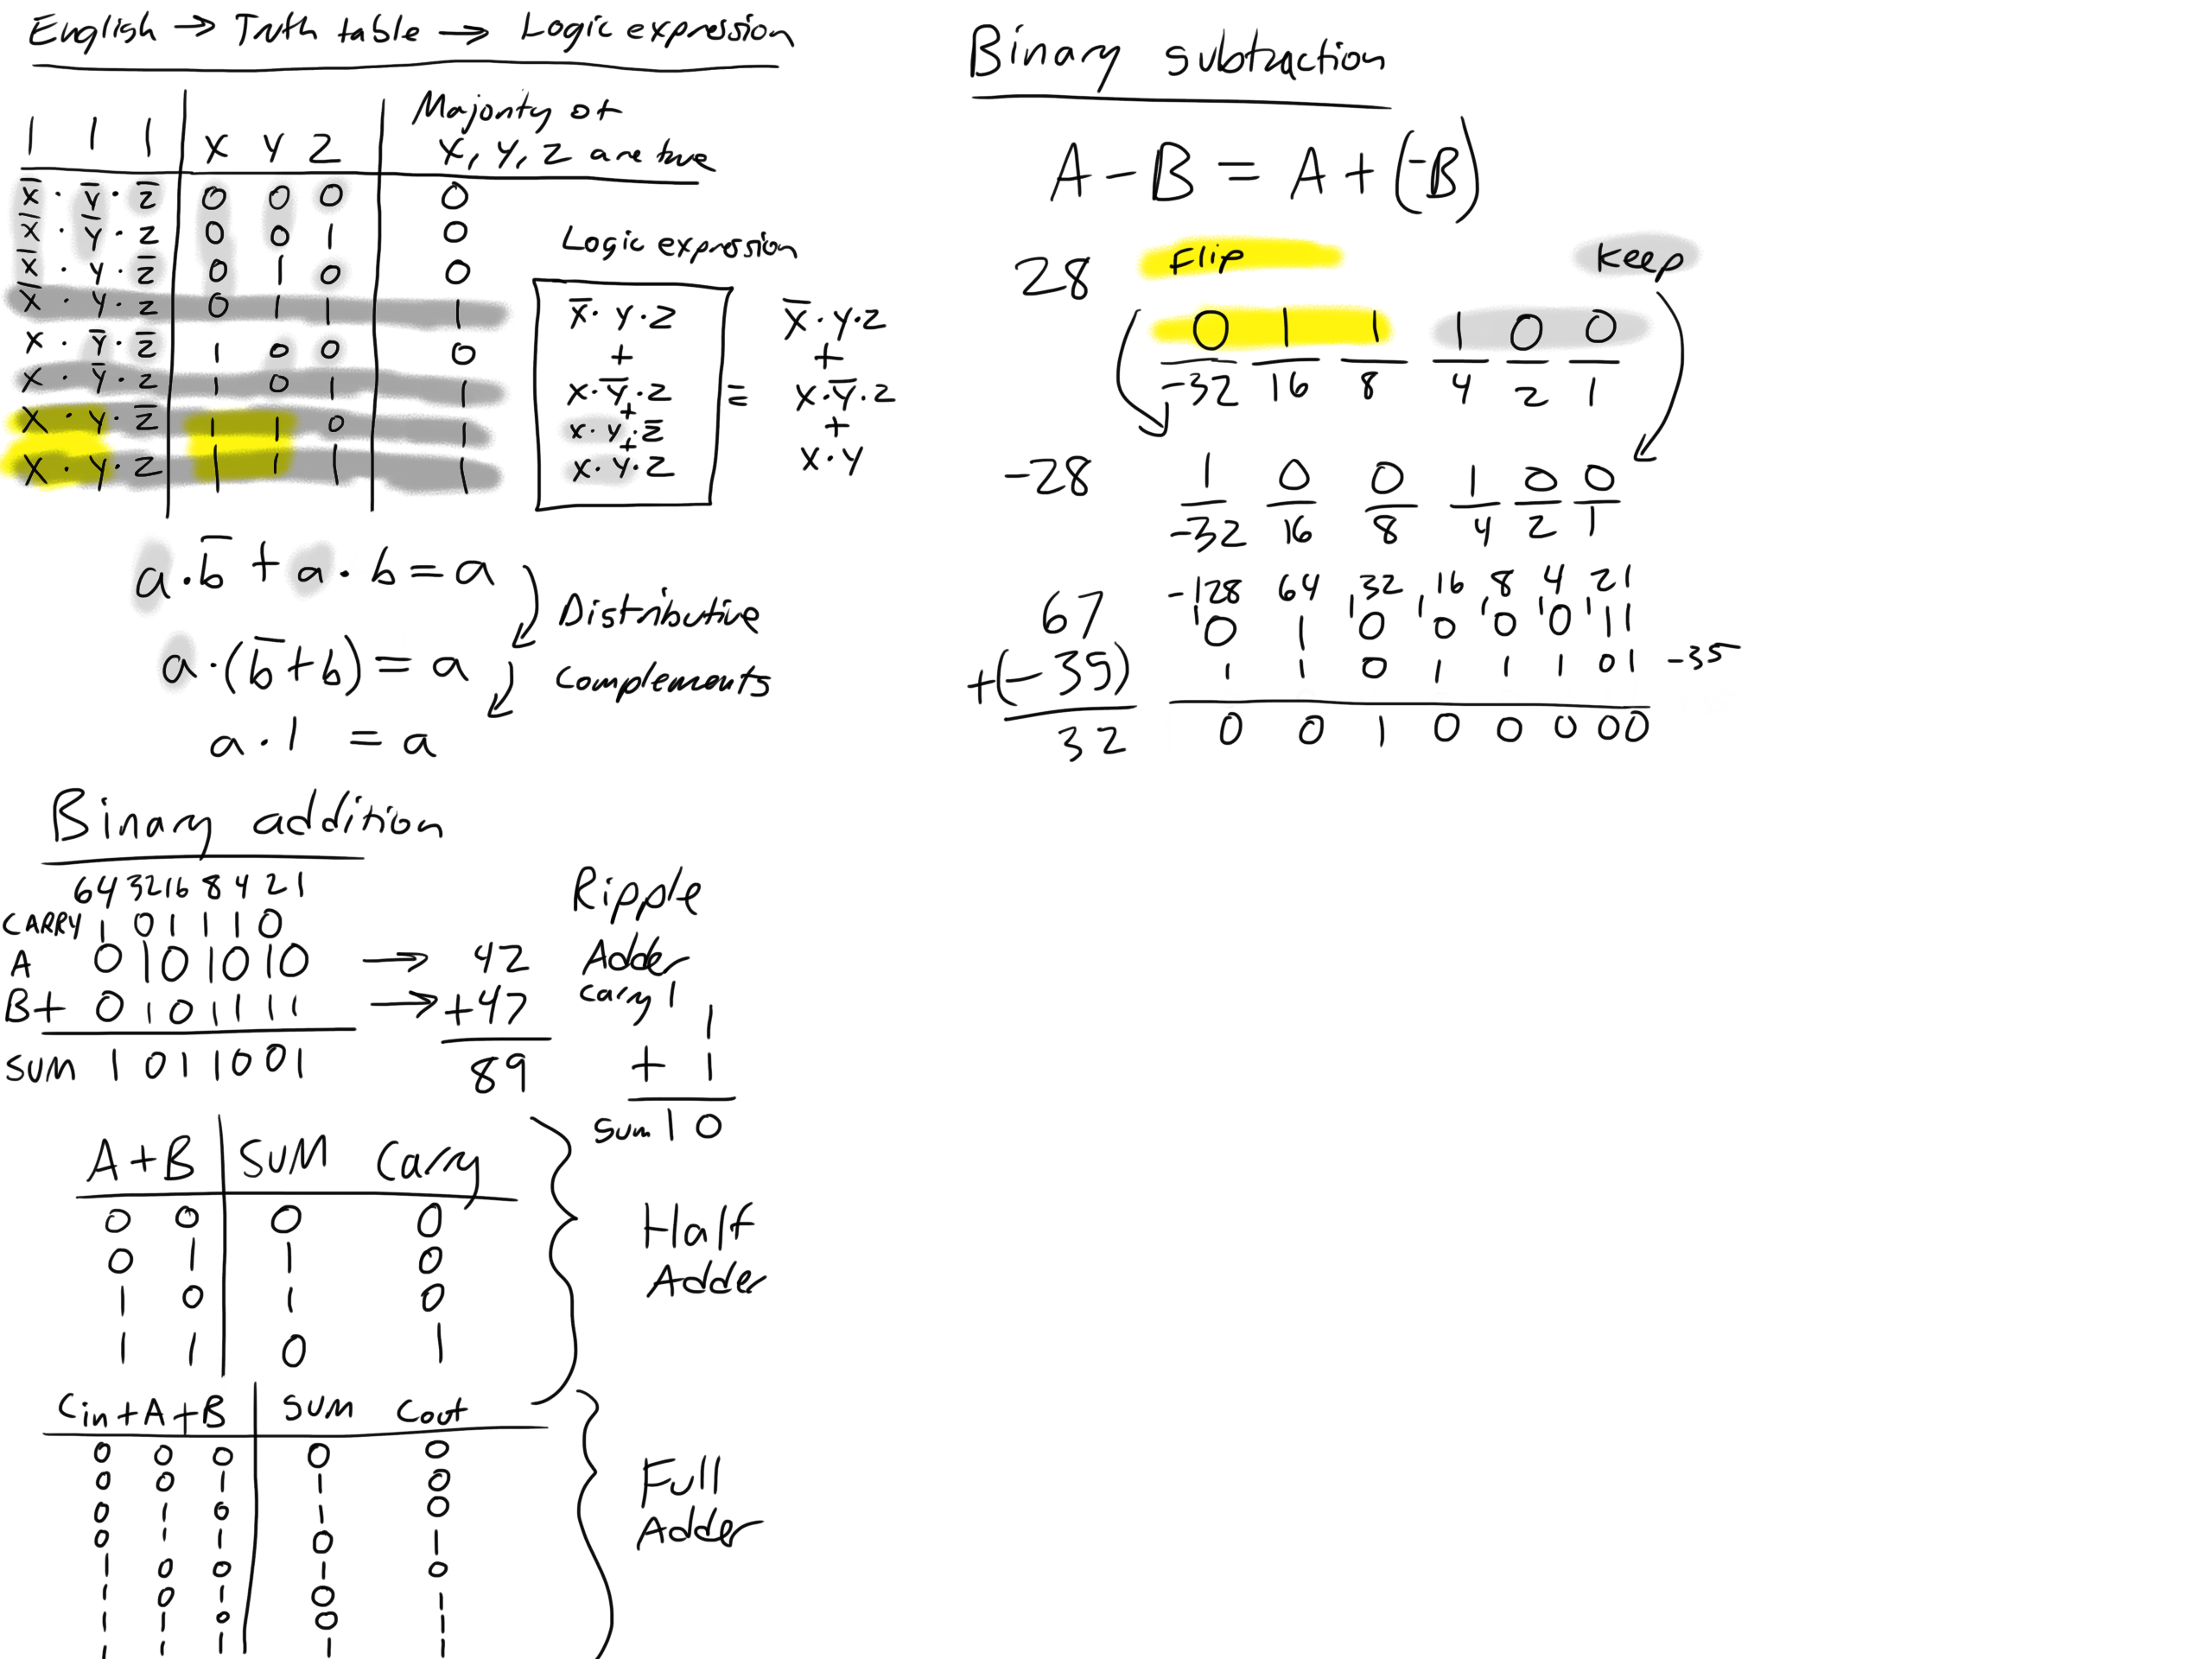 English → Truth table → Logic expression
1 1 1 | X Y Z | Majority of X, Y, Z are true
X̅ · Y̅ · Z̅ | 0 0 0 | 0
X̅ · Y̅ · Z | 0 0 1 | 0
X̅ · Y · Z̅ | 0 1 0 | 0
X̅ · Y · Z | 0 1 1 | 1
X · Y̅ · Z̅ | 1 0 0 | 0
X · Y̅ · Z | 1 0 1 | 1
X · Y · Z̅ | 1 1 0 | 1
X · Y · Z | 1 1 1 | 1
Logic expression
X̅ · Y · Z
+
X · Y̅ · Z
+
X · Y · Z̅
+
X · Y · Z
=
X̅ · Y · Z
+
X · Y̅ · Z
+
X · Y
a · b̅ + a · b = a
Distributive
a · (b̅ + b) = a
Complements
a · 1 = a
Binary addition
64 32 16 8 4 2 1
CARRY 1 0 1 1 1 0
A 0 1 0 1 0 1 0 → 42
B + 0 1 0 1 1 1 1 → +47
SUM 1 0 1 1 0 0 1 89
Ripple
Adder
Carry 1
1
+ 1
Sum 1 0
A + B | SUM Carry
0 0 | 0 0
0 1 | 1 0
1 0 | 1 0
1 1 | 0 1
Half
Adder
Cin + A + B | SUM Cout
0 0 0 | 0 0
0 0 1 | 1 0
0 1 0 | 1 0
0 1 1 | 0 1
1 0 0 | 1 0
1 0 1 | 0 1
1 1 0 | 0 1
1 1 1 | 1 1
Full
Adder
Binary subtraction
A - B = A + (-B)
28 Flip Keep
0 1 1 1 0 0
-32 16 8 4 2 1
-28 1 0 0 1 0 0
-32 16 8 4 2 1
-128 64 32 16 8 4 2 1
1 1 1 1 1 1
67 0 1 0 0 0 0 1 1
+(-35) 1 1 0 1 1 1 0 1 -35
32 0 0 1 0 0 0 0 0